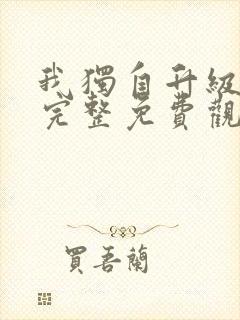 我獨自升級
完整免費觀
買吾蘭